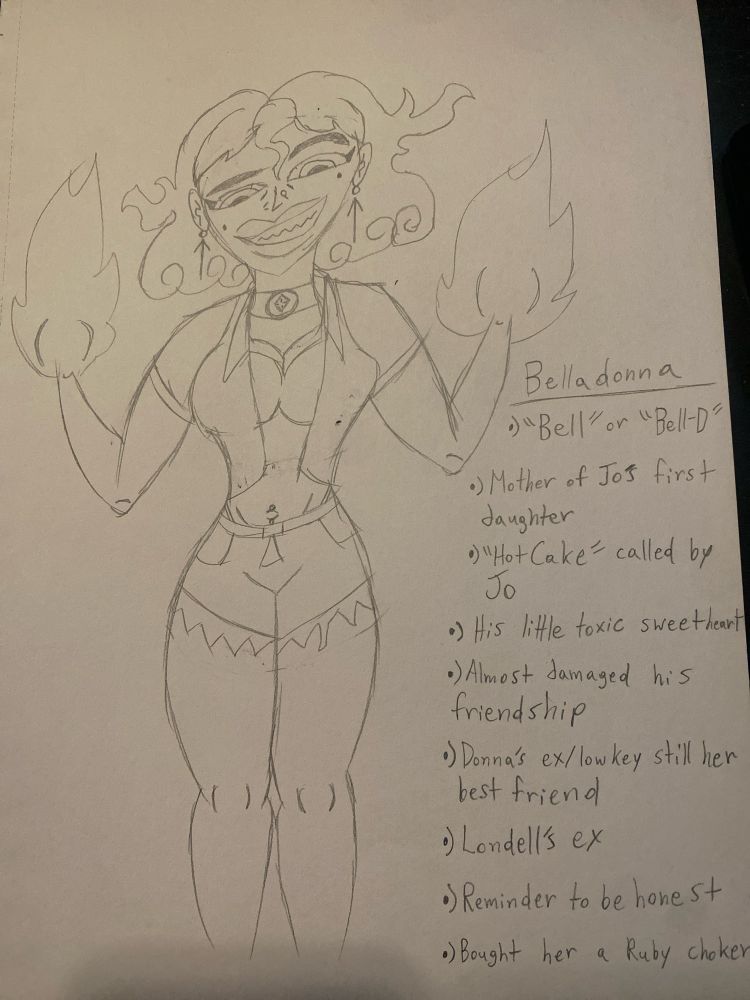 Belladonna
•) "Bell" or "Bell-D"
•) Mother of Jo's first
daughter
•) "HotCake" called by
Jo
•) His little toxic sweetheart
•) Almost damaged his
friendship
•) Donna's ex/lowkey still her
best friend
•) Londell's ex
•) Reminder to be honest
•) Bought her a Ruby choker